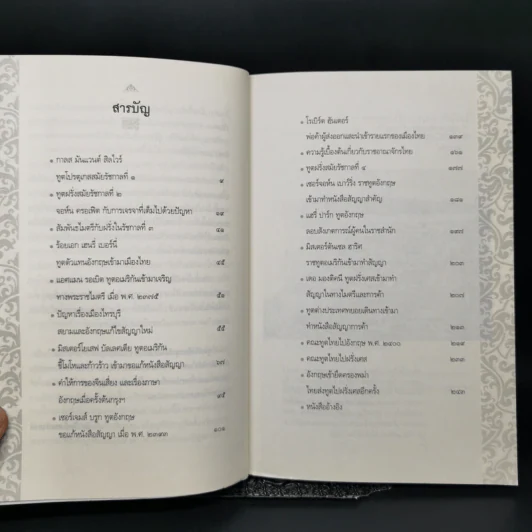 สารบัญ
๏ กาลส มันแวนต์ สิลไวร์
ทูตโปรตุเกสสมัยรัชกาลที่ ๑ ๔
๏ ทูตฝรั่งสมัยรัชกาลที่ ๒
จอห์น ครอเฟิต กับการเจรจาที่เต็มไปด้วยปัญหา ๑๗
๏ สัมพันธไมตรีกับฝรั่งในรัชกาลที่ ๓ ๔๑
๏ ร้อยเอก เฮนรี่ เบอร์นี่
ทูตตัวแทนอังกฤษเข้ามาเมืองไทย ๔๕
๏ แอดแมน รอเบิต ทูตอเมริกันเข้ามาเจริญ
ทางพระราชไมตรี เมื่อ พ.ศ. ๒๓๗๕ ๕๑
๏ ปัญหาเรื่องเมืองไทรบุรี
สยามและอังกฤษแก้ไขสัญญาใหม่ ๕๕
๏ มิสเตอร์โยเสฟ บัลเลศเตีย ทูตอเมริกัน
ขี้โมโหและก้าวร้าว เข้ามาขอแก้หนังสือสัญญา ๖๗
๏ คำให้การของจีนเสี่ยง และเรื่องภาษา
อังกฤษเมื่อครั้งต้นกรุงฯ ๙๕
๏ เซอร์เจมส์ บรูก ทูตอังกฤษ
ขอแก้หนังสือสัญญา เมื่อ พ.ศ. ๒๓๙๓ ๑๐๑
๏ โรเบิร์ต ฮันเตอร์
พ่อค้าผู้ส่งออกและนำเข้ารายแรกของเมืองไทย ๑๓๙
๏ ความรู้เบื้องต้นเกี่ยวกับราชอาณาจักรไทย ๑๖๑
๏ ทูตฝรั่งสมัยรัชกาลที่ ๔ ๑๗๗
๏ เซอร์จอห์น เบาว์ริ่ง ราชทูตอังกฤษ
เข้ามาทำหนังสือสัญญาสำคัญ ๑๘๑
๏ แฮรี่ ปาร์ก ทูตอังกฤษ
ลอบสังเกตการณ์ผู้คนในราชสำนัก ๑๙๗
๏ มิสเตอร์ต้นเซล ฮาริศ
ราชทูตอเมริกันเข้ามาทำสัญญา ๒๐๓
๏ เดอ มองติคนี ทูตฝรั่งเศสเข้ามาทำ
สัญญาในทางไมตรีและการค้า ๒๐๗
๏ ทูตต่างประเทศทยอยเดินทางเข้ามา
ทำหนังสือสัญญาการค้า
๏ คณะทูตไทยไปอังกฤษ พ.ศ. ๒๔๐๐
๏ คณะทูตไทยไปฝรั่งเศส
๏ อังกฤษเข้ายึดครองพม่า
ไทยส่งทูตไปฝรั่งเศสอีกครั้ง
๏ หนังสืออ้างอิง